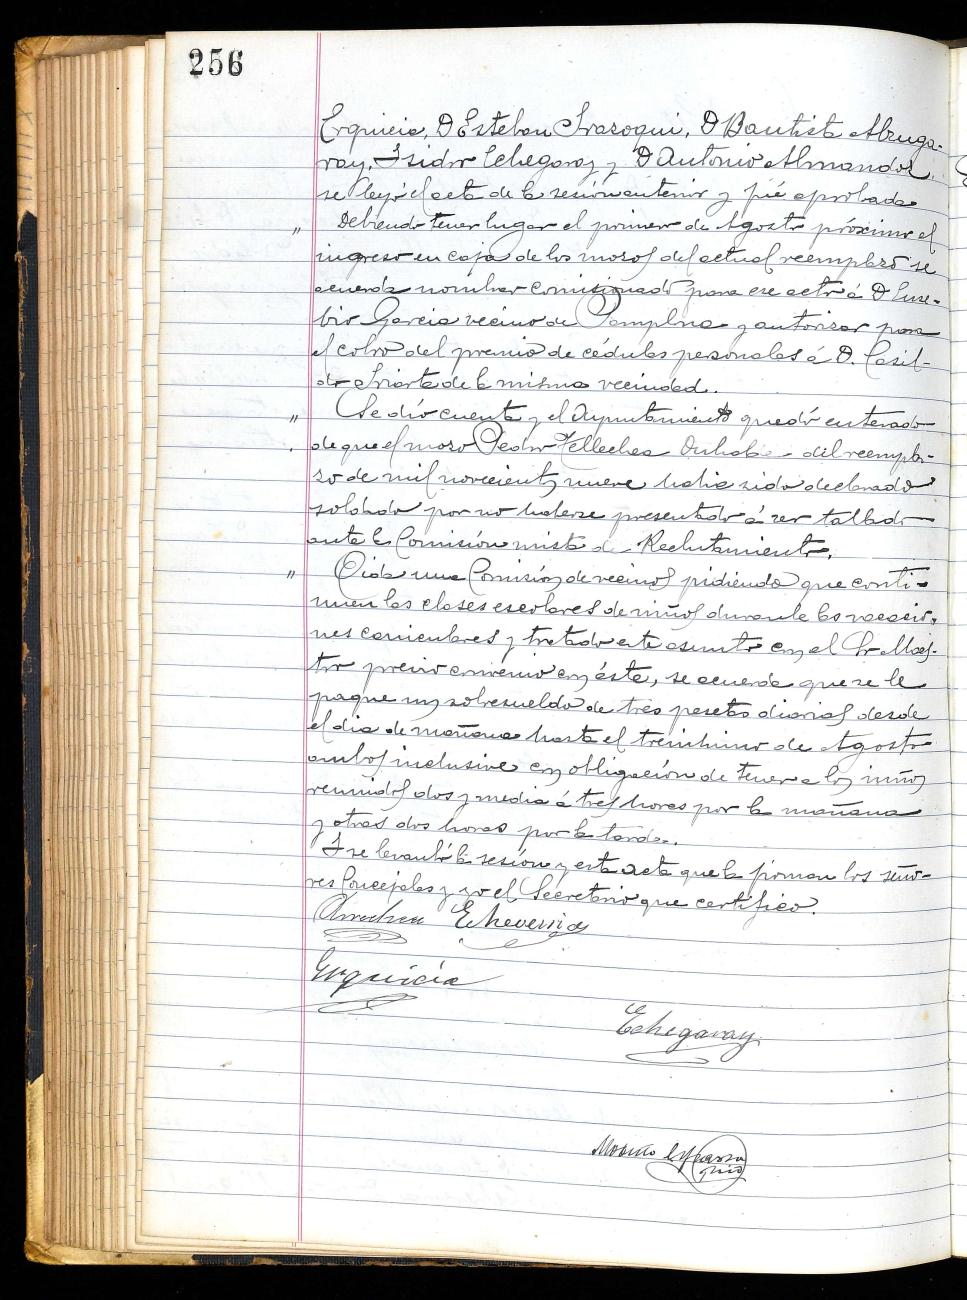 256
Erquicia, D Esteban Irasoqui, D Bautista Abuga-
ray, Isidro Echegaray y D Antonio Almandoz,
se leyó el acta de la sesión anterior y fué aprobada
" Debiendo tener lugar el primero de Agosto próximo el
ingreso en caja de los mozos del actual reemplazo se
acuerda nombrar comisionado para ese acto á D Euse-
bio Garcia vecino de Pamplona y autorizar para
el cobro del premio de cédulas personales á D. Casil-
do Iriarte de la misma vecindad.
" Se dió cuenta y el Ayuntamiento quedó enterado
de que el mozo Pedro Tellechea del reempla-
zo de mil novecientos nueve habia sido declarado
soldado por no haberse presentado á ser tallado
ante la Comisión mista de Reclutamiento.
" Oida una Comisión de vecinos pidiendo que conti-
nuen las clases escolares de niños durante las vacacio-
nes caniculares y tratado este asunto con el Sr Maes-
tro previo convenio con éste, se acuerda que se le
pague un sobresueldo de tres pesetas diarias desde
el dia de mañana hasta el treintiuno de Agosto
ambos inclusive con obligación de tener a los niños
reunidos dos y media á tres horas por la mañana
y otras dos horas por la tarde.
Y se levantó la sesión y esta acta que la firman los seño-
res Concejales y yo el Secretario que certifico.
Echeverria
Erquicia
Echegaray